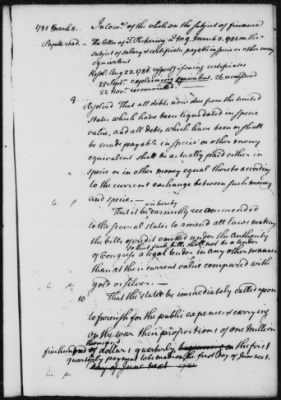 1781 March 8.
In Com.ee of the whole on the subject of finance
Papers read. — The letter of T. Pickering
subject of salary & certificates payable in specie or other money
equivalent
Rep. Aug 22. 1780 respecting certificates
explaining equivalent
22 Nov. recommitted
Resolved That all debts now due from the united
States which have been liquidated in specie
value, and all debts which have been or shall
be made payable in specie or other money
equivalent shall be actually paid either in
specie or in other money equal thereto according
to the current exchange between such money
and specie. —
That it be earnestly recommended
to the several states to amend all laws making
the bills of credit emitted under the Authority
so that such bills shall not be a tender
of Congress a legal tender in any other manner
than at their current value compared with
gold or silver. —
10
That the states be immediately called upon
to furnish for the public expences & carrying
on the war their proportions of one million
of dollars quarterly the first
quarterly payment to be made on the first Day of June next.
Day of June next